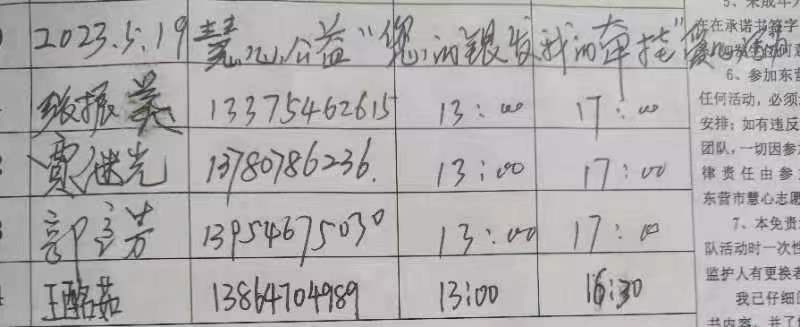 2023.5.19 慧心公益“您的银发我的牵挂”爱心活动
张振英 13375462615 13:00 17:00
贾继光 13780786236. 13:00 17:00
郭主芳 13954675030 13:00 17:00
王酩茹 13864704989 13:00 16:30
5、未成年人
在承诺书签字
6、参加东营
任何活动，必须
安排；如有违反
团队，一切因参
律责任由参
东营市慧心志愿
7、本免责
队活动时一次性
监护人有更换者
我已仔细
书内容，并了